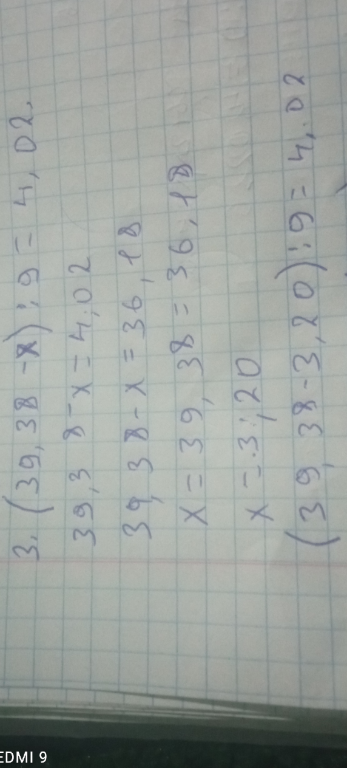 3. (39,38-x):9=4,02.
39,38-x=4,02
39,38-x=36,18
x=39,38=36,18
x=3,20
(39,38-3,20):9=4,02
EDMI 9